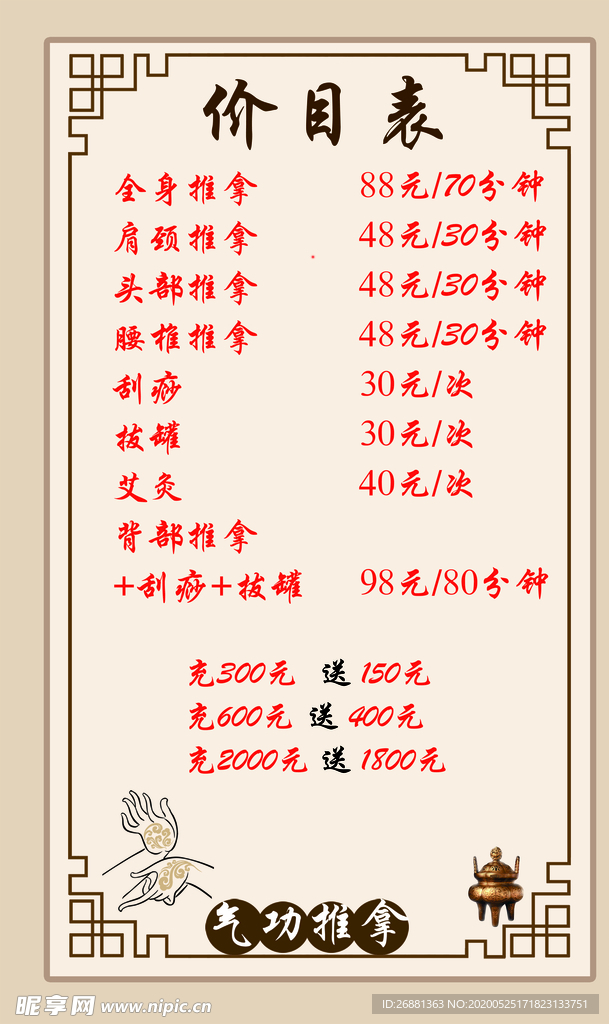 价目表
全身推拿 88元/70分钟
肩颈推拿 48元/30分钟
头部推拿 48元/30分钟
腰椎推拿 48元/30分钟
刮痧 30元/次
拔罐 30元/次
艾灸 40元/次
背部推拿
+刮痧+拔罐 98元/80分钟
充300元 送 150元
充600元 送 400元
充2000元 送 1800元
气功推拿
昵享网 www.nipic.cn
ID:26881363 NO:20200525171823133751